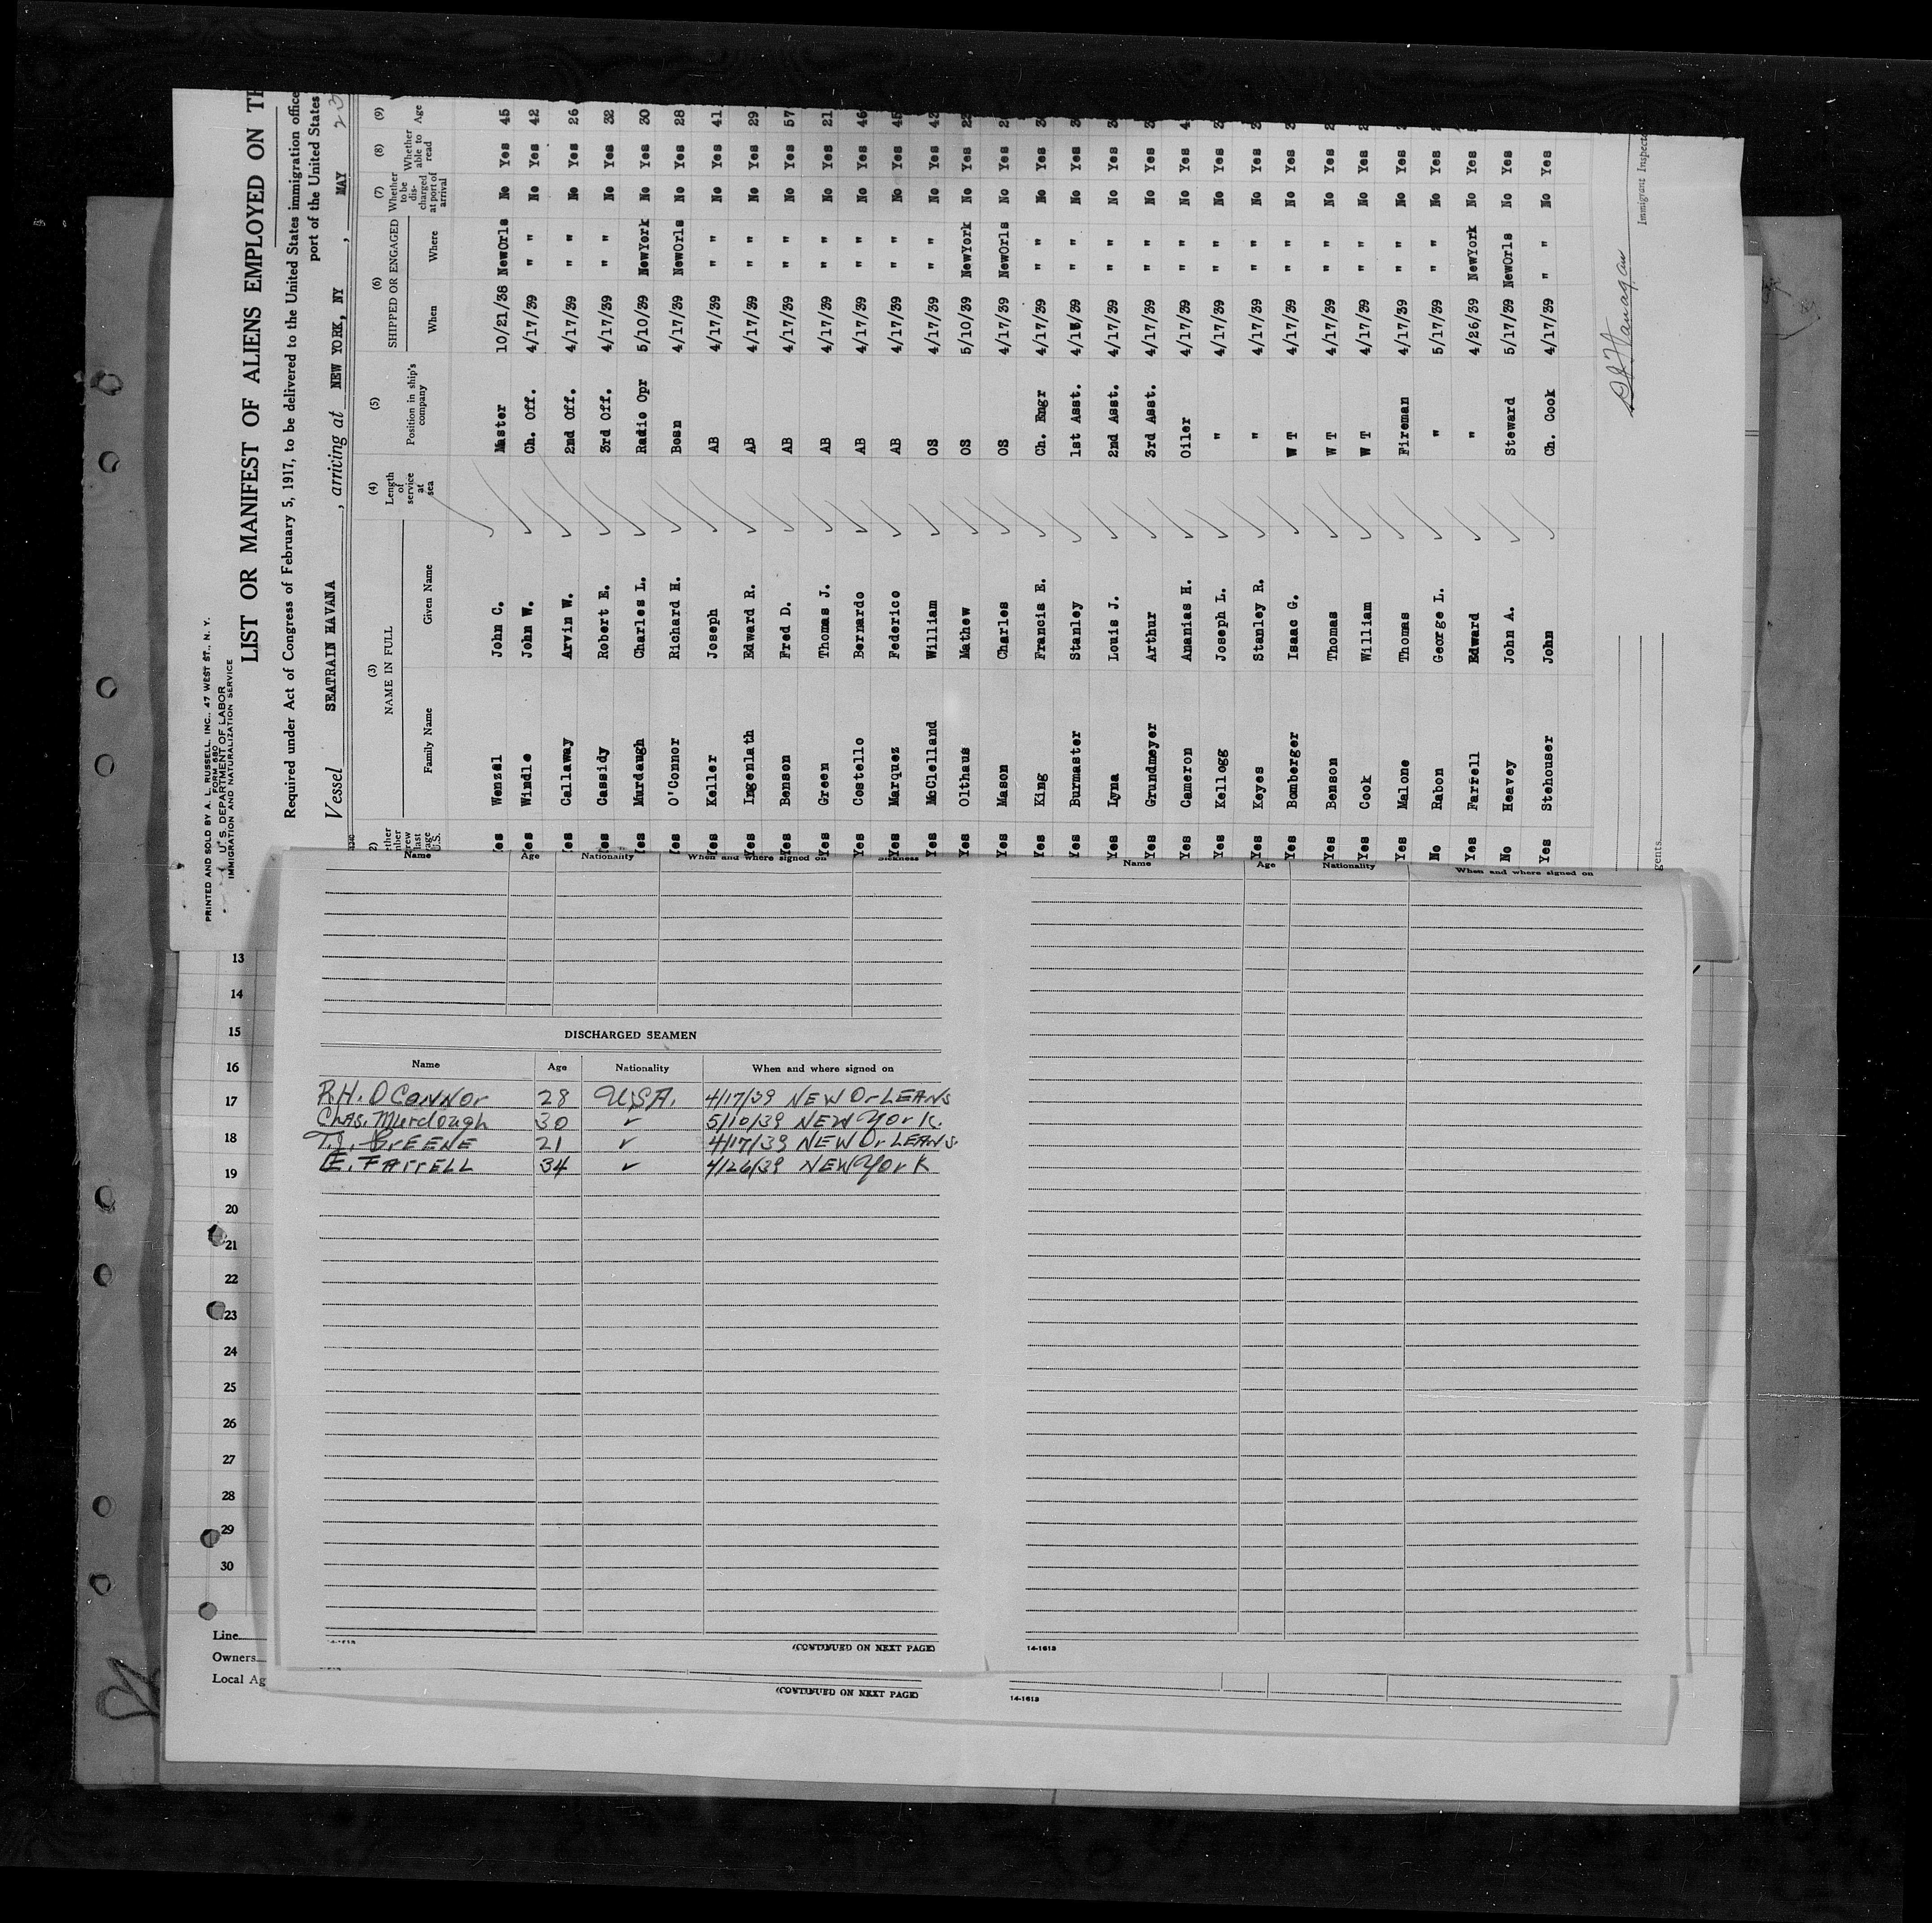 PRINTED AND SOLD BY A. L. RUSSELL, INC., 47 WEST ST., N. Y.
FORM 680
U. S. DEPARTMENT OF LABOR
IMMIGRATION AND NATURALIZATION SERVICE
LIST OR MANIFEST OF ALIENS EMPLOYED ON
Required under Act of Congress of February 5, 1917, to be delivered to the United States immigration
port of the United States
Vessel SEATRAIN HAVANA, arriving at NEW YORK, NY, MAY 23
(3) (4) (5) (6) (7) (8) (9)
NAME IN FULL Length of service at sea Position in ship's company SHIPPED OR ENGAGED Whether to be discharged at port of arrival Whether able to read Age
Family Name Given Name When Where
Wenzel John C. Master 10/21/38 NewOrls No Yes 45
Yes Windle John W. Ch. Off. 4/17/39 " " No Yes 42
Callaway Arvin W. 2nd Off. 4/17/39 " " No Yes 26
Yes Cassidy Robert E. 3rd Off. 4/17/39 " " No Yes 32
Yes Murdaugh Charles L. Radio Opr 5/10/39 NewYork No Yes 30
Yes O'Connor Richard H. Bosn 4/17/39 NewOrls No Yes 28
Yes Keller Joseph AB 4/17/39 " " No Yes 41
Yes Ingenlath Edward R. AB 4/17/39 " " No Yes 29
Yes Benson Fred D. AB 4/17/39 " " No Yes 57
Yes Green Thomas J. AB 4/17/39 " " No Yes 21
Yes Costello Bernardo AB 4/17/39 " " No Yes 46
Yes Marquez Federico AB 4/17/39 " " No Yes 45
Yes McClelland William OS 4/17/39 " " No Yes 42
Yes Olthaus Mathew OS 5/10/39 NewYork No Yes
Yes Mason Charles OS 4/17/39 NewOrls No Yes
Yes King Francis E. Ch. Engr 4/17/39 " " No Yes
Yes Burmaster Stanley 1st Asst. " " No Yes
Yes Lyna Louis J. 2nd Asst. 4/17/39 " " No Yes
Yes Grundmeyer Arthur 3rd Asst. 4/17/39 " " No Yes
Yes Cameron Ananias H. Oiler 4/17/39 " " No Yes
Yes Kellogg Joseph L. " 4/17/39 " " No Yes
Yes Keyes Stanley R. " 4/17/39 " " No Yes
Yes Bomberger Isaac G. W T 4/17/39 " " No Yes
Yes Benson Thomas W T 4/17/39 " " No Yes
Yes Cook William W T 4/17/39 " " No Yes
Yes Malone Thomas Fireman 4/17/39 " " No Yes
No Rabon George L. " 5/17/39 " " No Yes
Yes Farrell Edward " 4/26/39 NewYork No Yes
No Heavey John A. Steward 5/17/39 NewOrls No Yes
Yes Stehouser John Ch. Cook 4/17/39 " " No Yes
Immigrant
Name Age Nationality When and where signed on Sickness
Name Age Nationality When and where signed on
DISCHARGED SEAMEN
Name Age Nationality When and where signed on
R.H. O CONNOr 28 U.S.A. 4/17/39 NEW OrLEANS
Chas. Murdough 30 ✓ 5/10/39 NEW YorK.
T.J. GrEENE 21 ✓ 4/17/39 NEW OrLEANS
E. FArrELL 34 ✓ 4/26/39 NEW YorK
(CONTINUED ON NEXT PAGE)
14-1613
(CONTINUED ON NEXT PAGE)
14-1613
13
14
15
16
17
18
19
20
21
22
23
24
25
26
27
28
29
30
Line
Owners
Local Ag